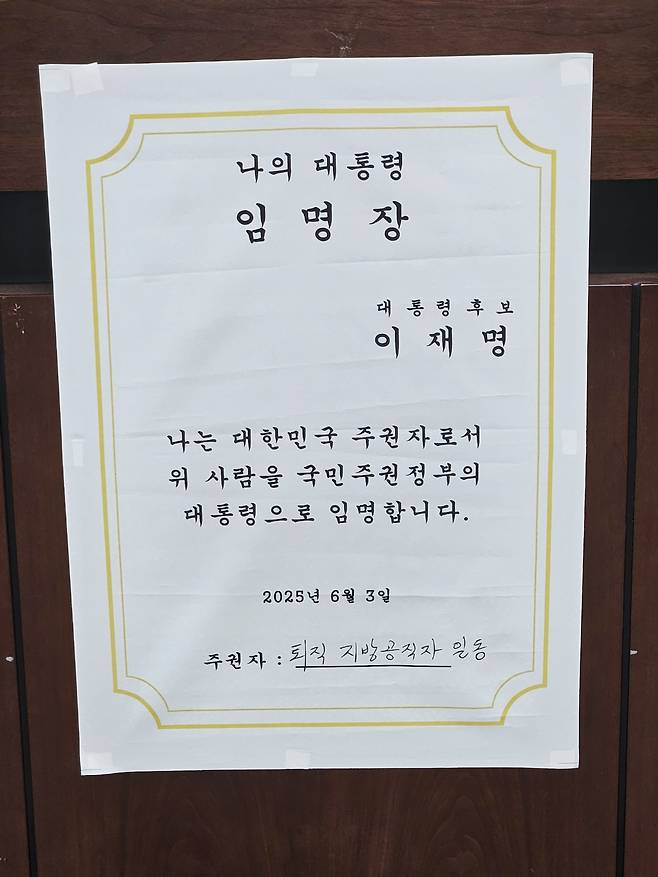 나의 대통령
임명장
대통령후보
이재명
나는 대한민국 주권자로서
위 사람을 국민주권정부의
대통령으로 임명합니다.
2025년 6월 3일
주권자 : 퇴직 지방공직자 일동